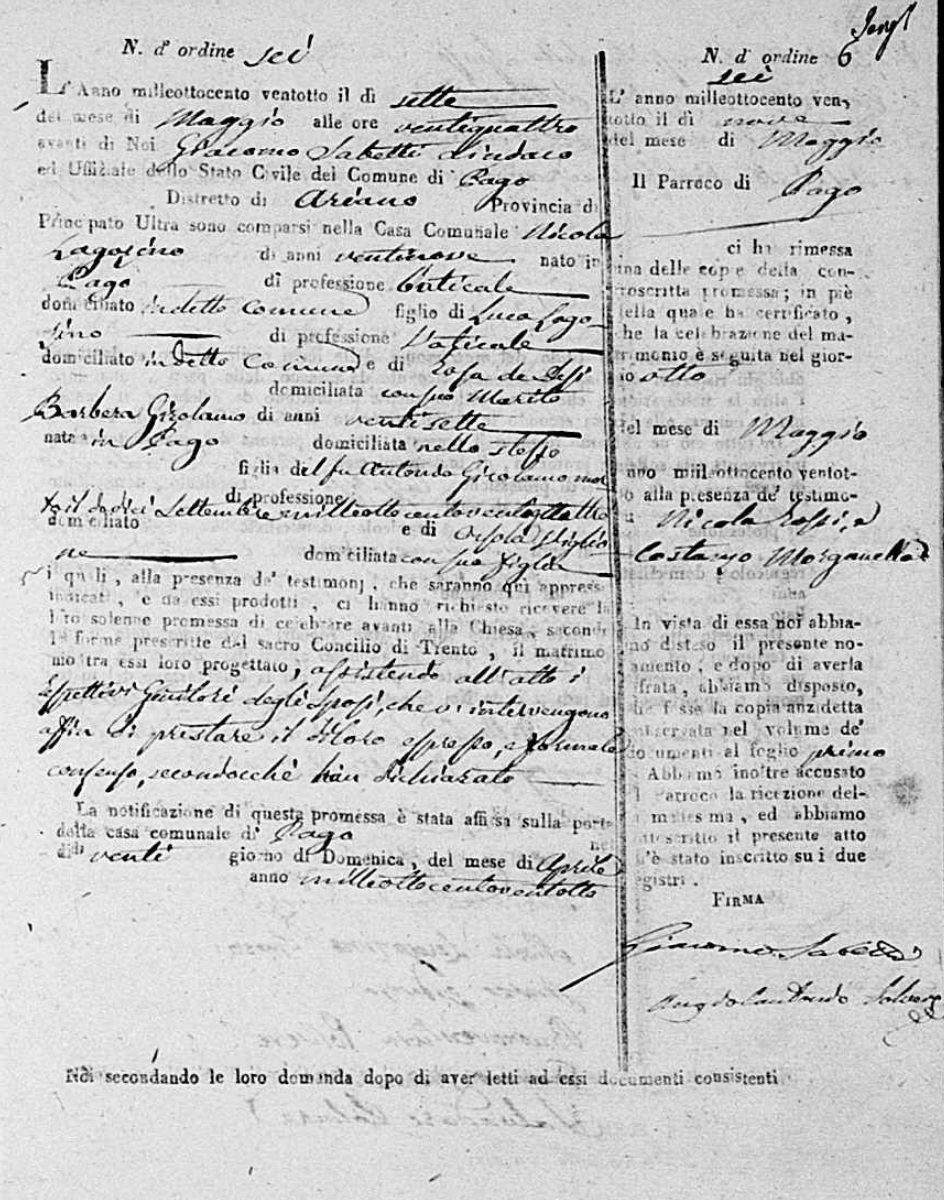 N. d' ordine sei
L' Anno milleottocento ventotto il dì sette
del mese di Maggio alle ore ventiquattro
avanti di Noi Giacomo Sabetti Sindaco
ed Uffiziale dello Stato Civile del Comune di Pago
Distretto di Ariano Provincia di
Principato Ultra sono comparsi nella Casa Comunale Nicola
Lagozino di anni ventinove nato in
Pago di professione
domiciliato in detto comune figlio di Luca Lago-
zino di professione
domiciliato in detto Comune e di Rosa de
domiciliata con suo Marito
Barbera Girolamo di anni ventisette
nata in Pago domiciliata nello stesso
figlia del fu Antonio Girolamo mor-
to il dodici Settembre milleottocentoventiquattro
di professione
domiciliato e di Orsola
ne domiciliata con sua figlia
i quali, alla presenza de' testimonj, che saranno qui appresso
indicati, e da essi prodotti, ci hanno richiesto ricevere la
loro solenne promessa di celebrare avanti alla Chiesa, secondo
le forme prescritte dal sacro Concilio di Trento, il matrimo
nio tra essi loro progettato, assistendo all'atto i
rispettivi Genitori degli Sposi, che vi intervengono
affin di prestare il di loro espresso, e formale
consenso, secondocchè han dichiarato
La notificazione di questa promessa è stata affissa sulla porta
della casa comunale di Pago nel
dì venti giorno di Domenica, del mese di Aprile
anno milleottocentoventotto
N. d' ordine 6
sei
L' anno milleottocento ven-
totto il dì nove
del mese di Maggio
Il Parroco di Pago
ci ha rimessa
una delle copie della con-
troscritta promessa; in piè
della quale ha certificato,
che la celebrazione del ma-
trimonio è seguita nel gior-
no otto
del mese di Maggio
anno milleottocento ventot-
to alla presenza de' testimo-
ni Nicola Rossi, e
Costanzo Morganella
In vista di essa noi abbia-
mo disteso il presente no-
tamento, e dopo di averla
cifrata, abbiamo disposto,
che fosse la copia anzidetta
conservata nel volume de'
documenti al foglio primo
Abbiamo inoltre accusato
al Parroco la ricezione del-
la medesima, ed abbiamo
sottoscritto il presente atto
ch'è stato inscritto su i due
registri.
FIRMA
Giacomo Sabetti
Noi secondando le loro domanda dopo di aver letti ad essi documenti consistenti